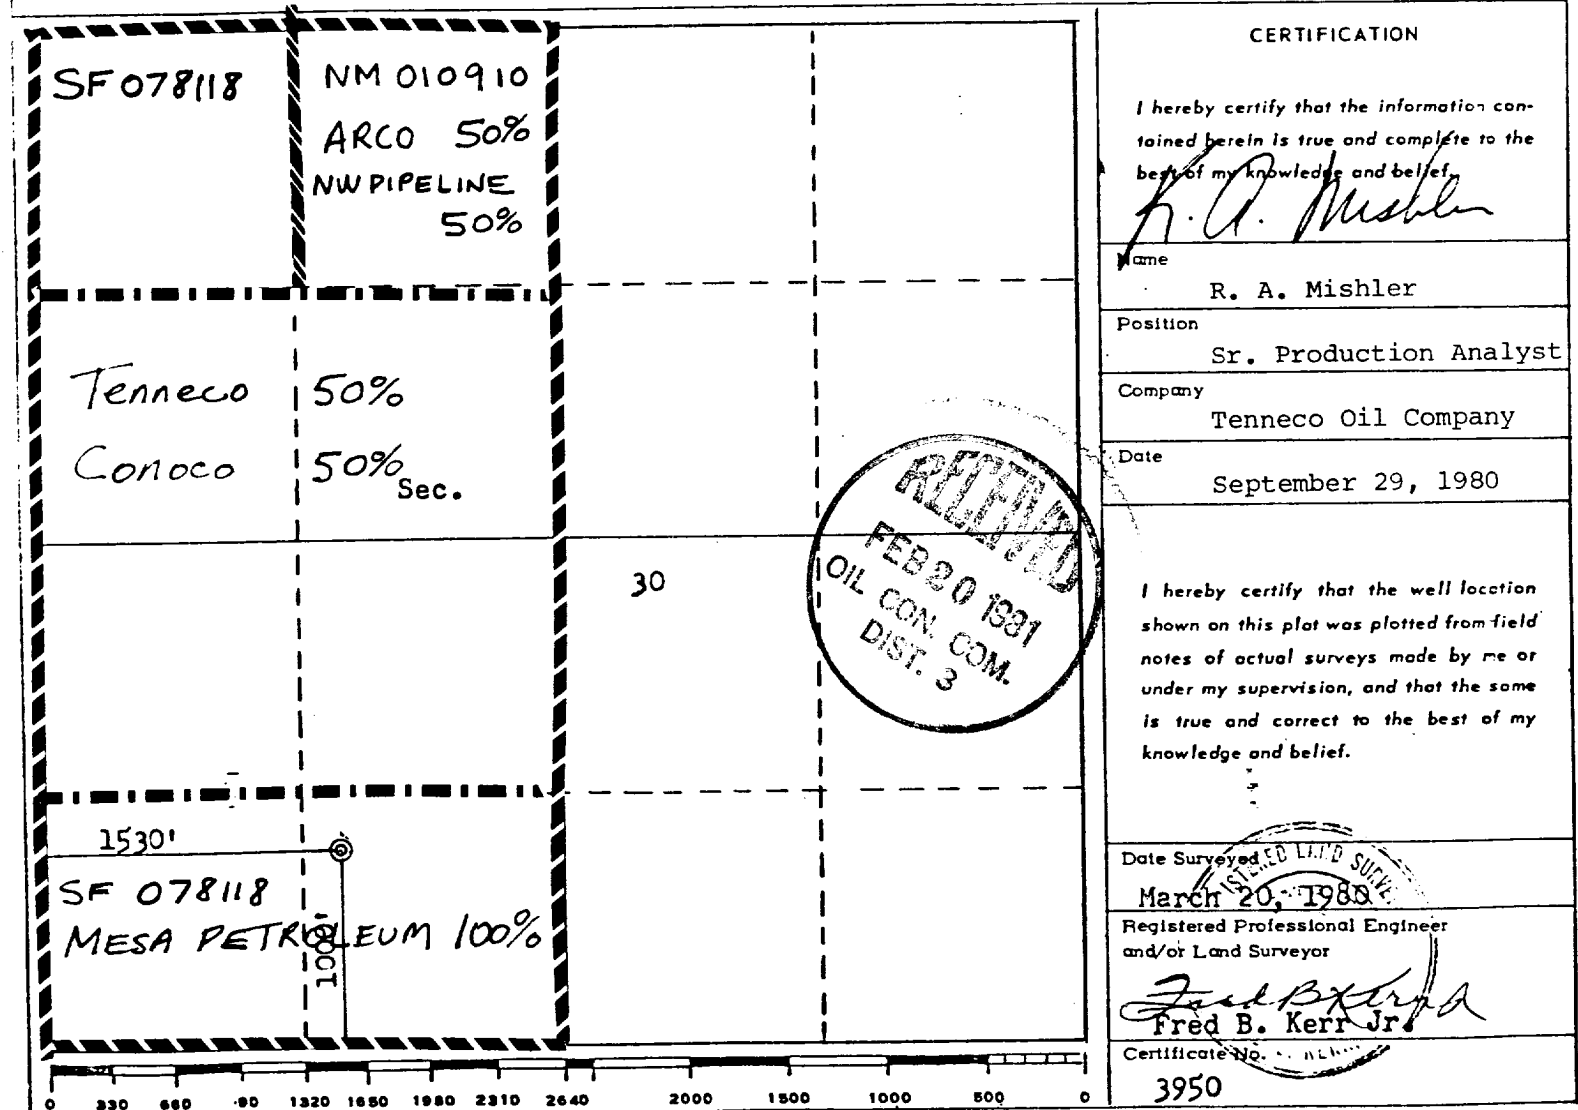 SF 078118
NM 010910
ARCO 50%
NW PIPELINE
50%
Tenneco 50%
Conoco 50%
Sec.
30
RECEIVED
FEB 20 1981
OIL CON. COM.
DIST. 3
1530'
SF 078118
MESA PETROLEUM 100%
1000'
0 330 660 90 1320 1650 1980 2310 2640 2000 1500 1000 500 0
CERTIFICATION
I hereby certify that the information con-
tained herein is true and complete to the
best of my knowledge and belief.
R. A. Mishler
Name
R. A. Mishler
Position
Sr. Production Analyst
Company
Tenneco Oil Company
Date
September 29, 1980
I hereby certify that the well location
shown on this plat was plotted from field
notes of actual surveys made by me or
under my supervision, and that the same
is true and correct to the best of my
knowledge and belief.
Date Surveyed
March 20, 1980
Registered Professional Engineer
and/or Land Surveyor
Fred B. Kerr Jr.
Fred B. Kerr Jr.
Certificate No.
3950